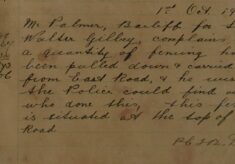 1st Oct 19
Mr Palmer, Bailiff for S
Walter Gilbey, complains
a quantity of fencing ha
been pulled down & carried
from East Road, & he wis
the Police could find ou
who done this, this fe
is situated at the top of
Road.